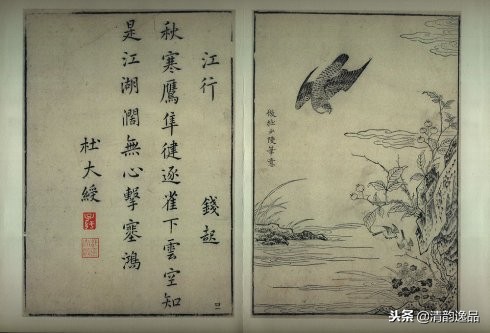 江行　錢起
秋寒鷹隼健逐雀下雲空知
是江湖闊無心擊塞鴻
杜大綬
头条 @清韵逸品